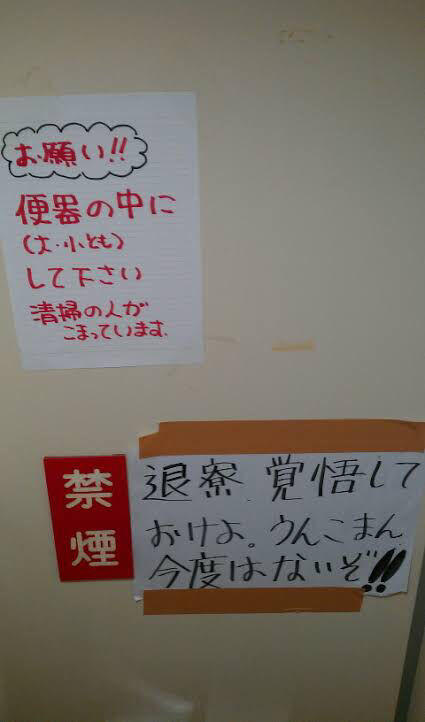 お願い!!
便器の中に
(大・小とも)
して下さい
清掃の人が
こまっています.
禁煙
退寮 覚悟して
おけよ。うんこまん.
今度はないぞ!!